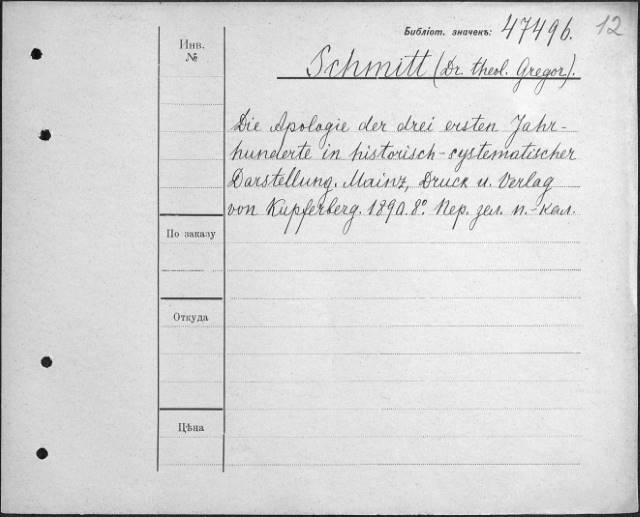 Библіот. значекъ: 47496. 12
Инв. №
Schmitt (Dr. theol. Gregor).
Die Apologie der drei ersten Jahr-
hunderte in historisch-systematischer
Darstellung. Mainz, Druck u. Verlag
von Kupferberg. 1890. 8º. Пер. зел. п.-кал.
По заказу
Откуда
Цѣна